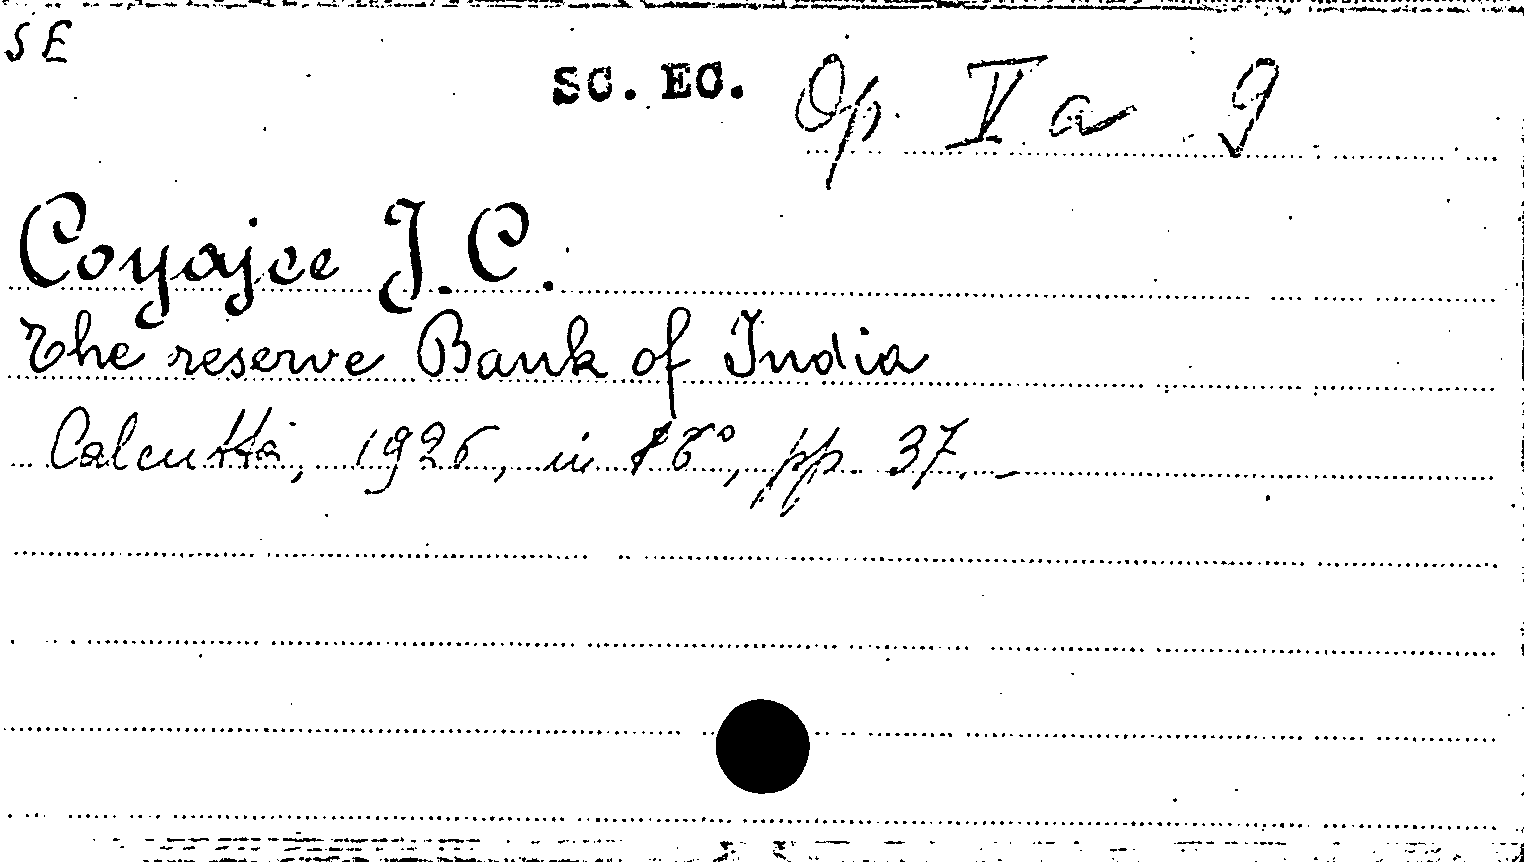 SE
SC. EC. Op. V a 9
Coyajee J. C.
The reserve Bank of India
Calcutta, 1926, in 16°, pp. 37. -